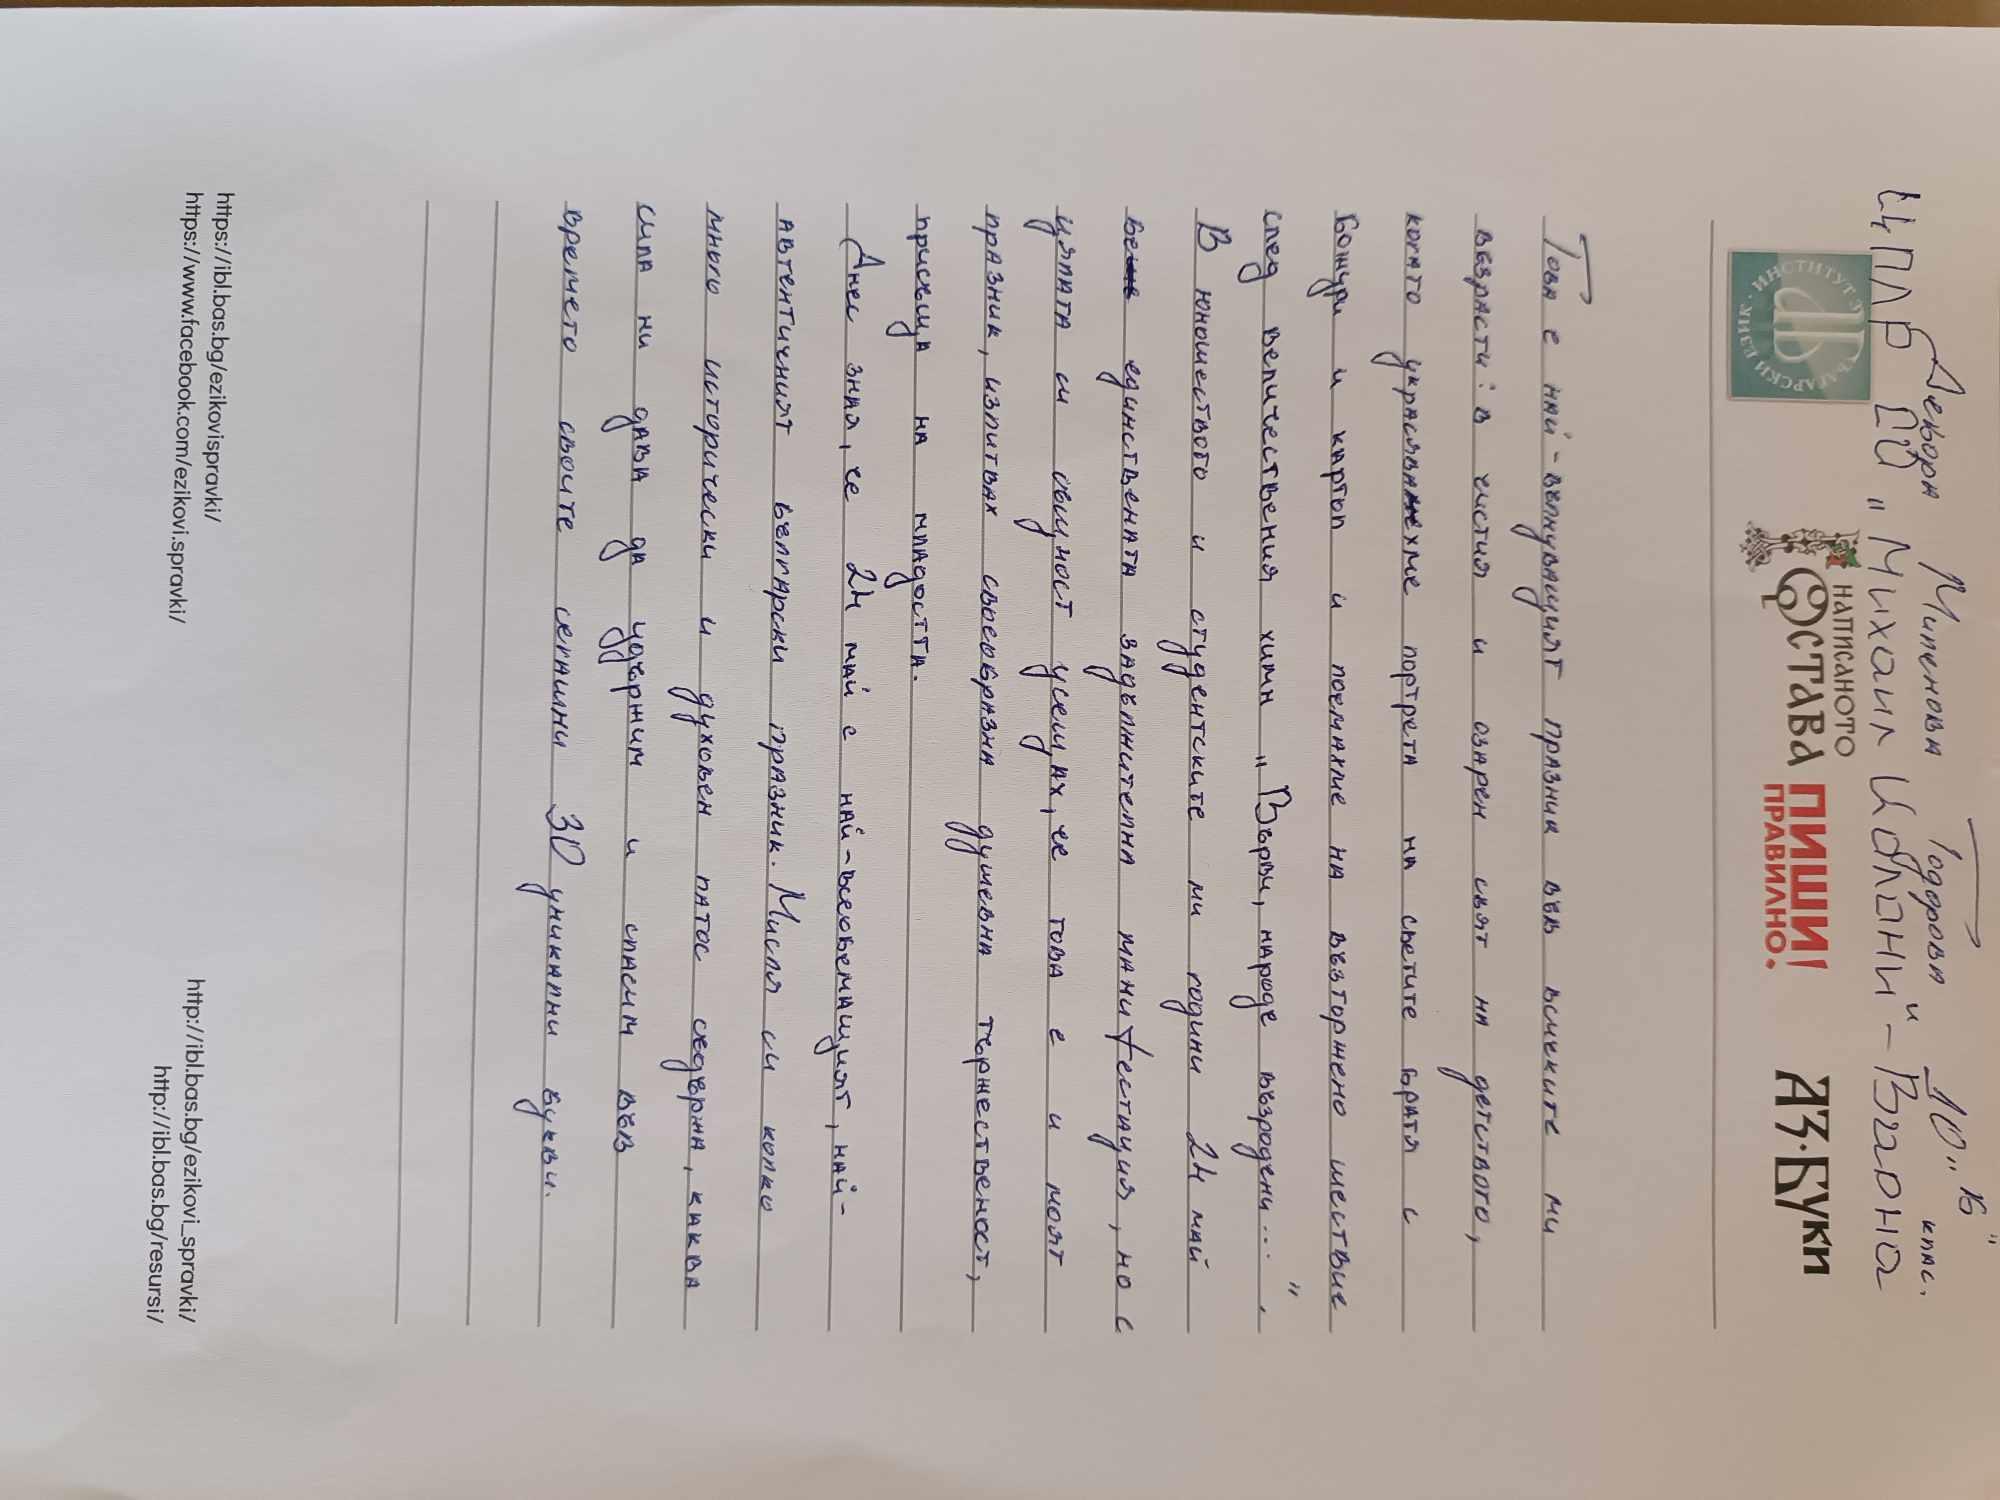 Деворя Миленова Тодорова 10 "В" клас.
ЦПЛР ЕГ "Михаил Колони" – Варна
ИНСТИТУТ ЗА БЪЛГАРСКИ ЕЗИК
НАПИСАНОТО
ОСТАВА
ПИШИ
ПРАВИЛНО!
АЗ·БУКИ
Това е най-вълнуващият празник във всичките ми
възрасти: в чистия и озарен свят на детството,
когато украсявахме портрета на светите братя с
божури и картон и поемахме на възторжено шествие
след величествения химн „Върви, народе възродени...",
В юношеството и студентските ми години 24 май
бе единствената задължителна манифестация, но с
цялата си същност усещах, че това е и моят
празник, изпитвах своеобразна душевна тържественост,
присъща на младостта.
Днес зная, че 24 май е най-всеобемащият, най-
автентичният български празник. Мисля си колко
много исторически и духовен патос съдържа, каква
сила ни дава да издържим и спасим във
времето своите сегашни 30 уникални букви.
https://ibl.bas.bg/ezikovispravki/
https://www.facebook.com/ezikovi.spravki/
http://ibl.bas.bg/ezikovi_spravki/
http://ibl.bas.bg/resursi/